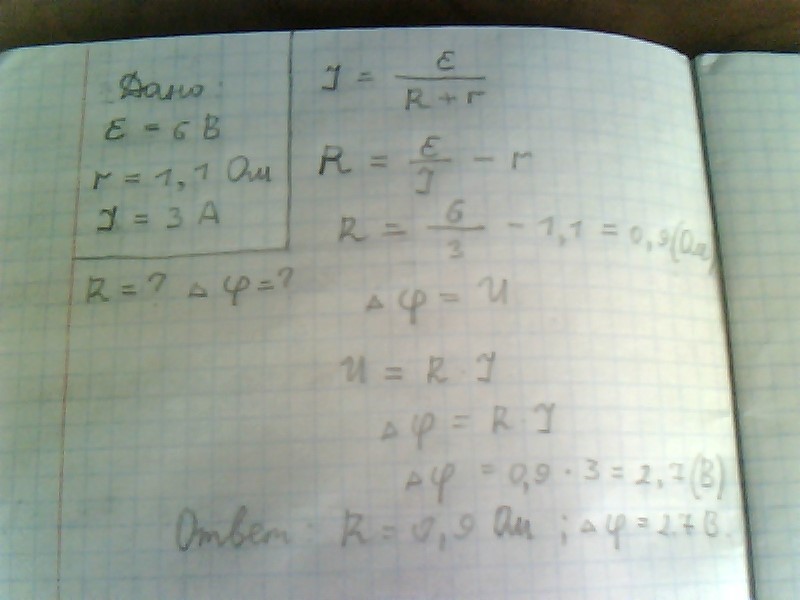 Дано:
ε = 6 В
r = 1,1 Ом
I = 3 А
R = ? Δφ = ?
I = ε / (R + r)
R = ε / I - r
R = 6 / 3 - 1,1 = 0,9 (Ом)
Δφ = U
U = R · I
Δφ = R · I
Δφ = 0,9 · 3 = 2,7 (В)
Ответ: R = 0,9 Ом ; Δφ = 2,7 В.